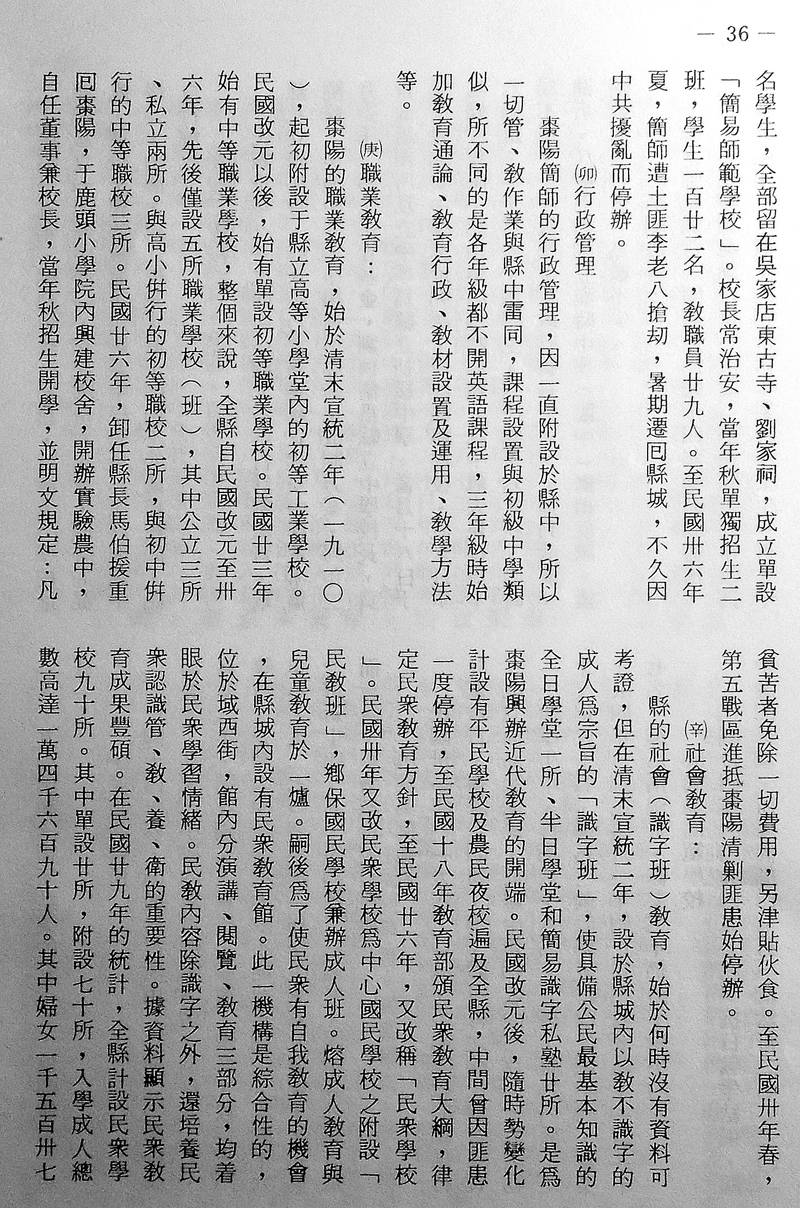 — 36 —
名學生，全部留在吳家店東古寺、劉家祠，成立單設
「簡易師範學校」。校長常治安，當年秋單獨招生二
班，學生一百廿二名，教職員廿九人。至民國卅六年
夏，簡師遭土匪李老八搶刧，暑期遷囘縣城，不久因
中共擾亂而停辦。
㈲行政管理
棗陽簡師的行政管理，因一直附設於縣中，所以
一切管、教作業與縣中雷同，課程設置與初級中學類
似，所不同的是各年級都不開英語課程，三年級時始
加教育通論、教育行政、教材設置及運用、教學方法
等。
(庚)職業教育：
棗陽的職業教育，始於清末宣統二年（一九一〇
），起初附設于縣立高等小學堂內的初等工業學校。
民國改元以後，始有單設初等職業學校。民國廿三年
始有中等職業學校，整個來說，全縣自民國改元至卅
六年，先後僅設五所職業學校（班），其中公立三所
、私立兩所。與高小併行的初等職校二所，與初中併
行的中等職校三所。民國廿六年，卸任縣長馬伯援重
囘棗陽，于鹿頭小學院內興建校舍，開辦實驗農中，
自任董事兼校長，當年秋招生開學，並明文規定：凡
貧苦者免除一切費用，另津貼伙食。至民國卅年春，
第五戰區進抵棗陽清剿匪患始停辦。
(辛)社會教育：
縣的社會（識字班）教育，始於何時沒有資料可
考證，但在清末宣統二年，設於縣城內以教不識字的
成人爲宗旨的「識字班」，使具備公民最基本知識的
全日學堂一所、半日學堂和簡易識字私塾廿所。是爲
棗陽興辦近代教育的開端。民國改元後，隨時勢變化
計設有平民學校及農民夜校遍及全縣，中間曾因匪患
一度停辦，至民國十八年教育部頒民衆教育大綱，律
定民衆教育方針，至民國廿六年，又改稱「民衆學校
」。民國卅年又改民衆學校爲中心國民學校之附設「
民教班」，鄉保國民學校兼辦成人班。熔成人教育與
兒童教育於一爐。嗣後爲了使民衆有自我教育的機會
，在縣城內設有民衆教育館。此一機構是綜合性的，
位於城西街，館內分演講、閱覽、教育三部分，均着
眼於民衆學習情緒。民教內容除識字之外，還培養民
衆認識管、教、養、衛的重要性。據資料顯示民衆教
育成果豐碩。在民國廿九年的統計，全縣計設民衆學
校九十所。其中單設廿所，附設七十所，入學成人總
數高達一萬四千六百九十人。其中婦女一千五百卅七